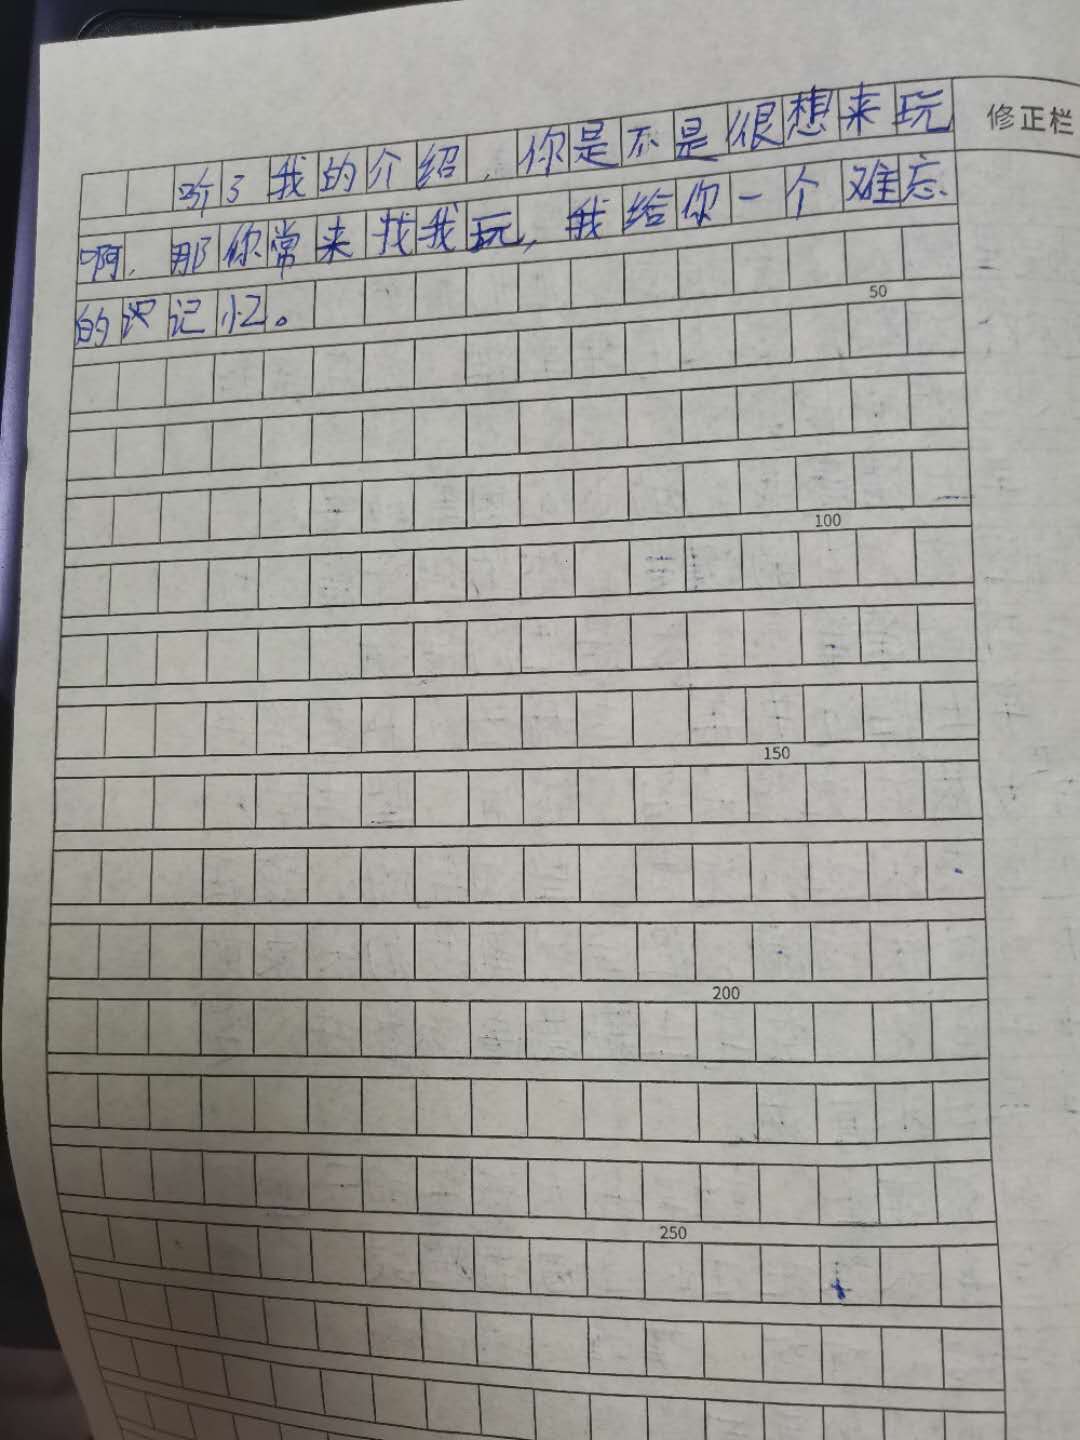 听了我的介绍，你是不是很想来玩
修正栏
啊，那你常来找我玩，我给你一个难忘
的识记忆。
50
100
150
200
250